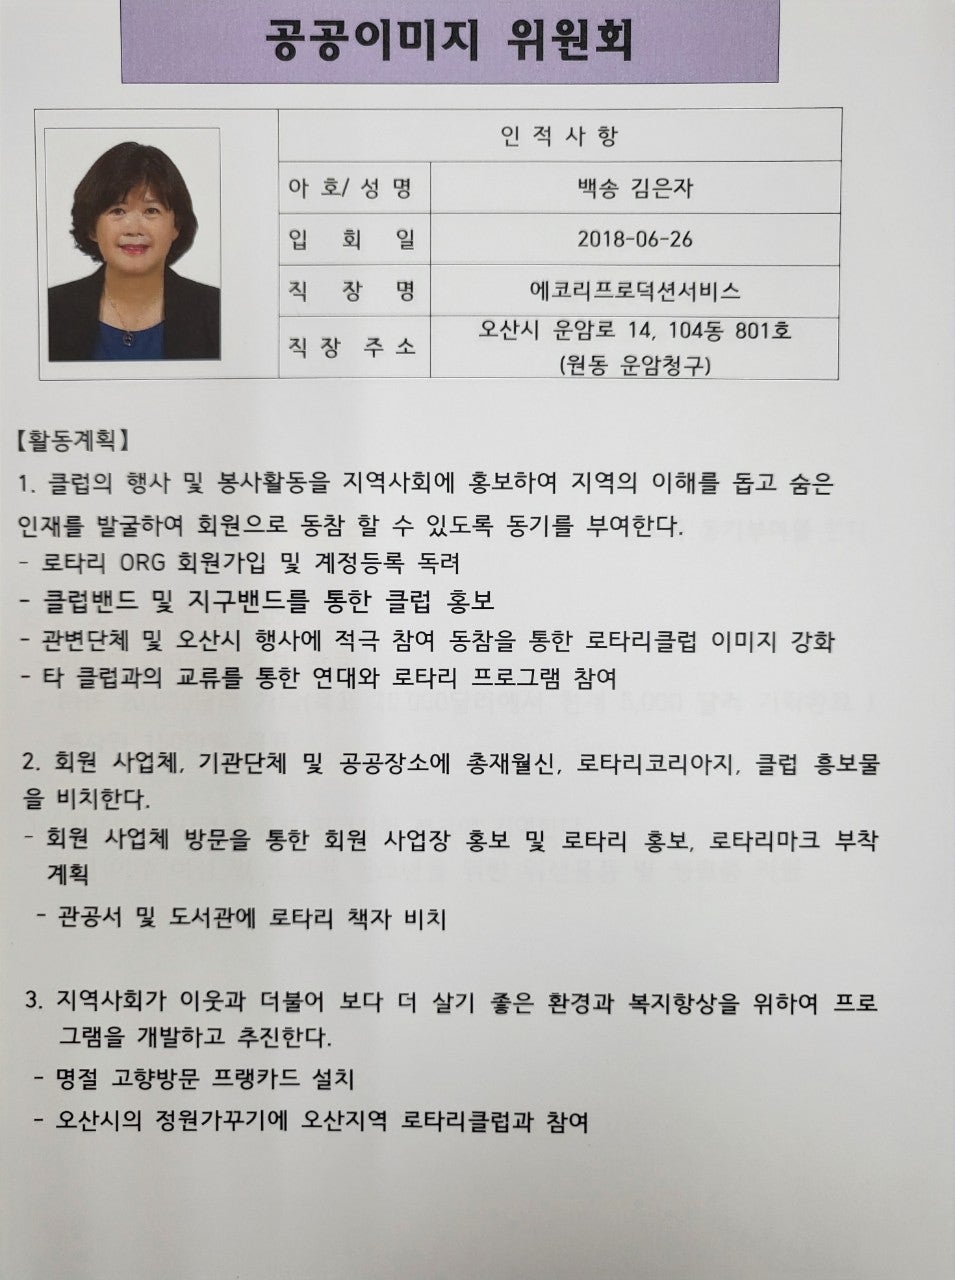 공공이미지 위원회
인 적 사 항
아 호/ 성 명 백송 김은자
입 회 일 2018-06-26
직 장 명 에코리프로덕션서비스
직 장 주 소 오산시 운암로 14, 104동 801호
(원동 운암청구)
【활동계획】
1. 클럽의 행사 및 봉사활동을 지역사회에 홍보하여 지역의 이해를 돕고 숨은
인재를 발굴하여 회원으로 동참 할 수 있도록 동기를 부여한다.
- 로타리 ORG 회원가입 및 계정등록 독려
- 클럽밴드 및 지구밴드를 통한 클럽 홍보
- 관변단체 및 오산시 행사에 적극 참여 동참을 통한 로타리클럽 이미지 강화
- 타 클럽과의 교류를 통한 연대와 로타리 프로그램 참여
2. 회원 사업체, 기관단체 및 공공장소에 총재월신, 로타리코리아지, 클럽 홍보물
을 비치한다.
- 회원 사업체 방문을 통한 회원 사업장 홍보 및 로타리 홍보, 로타리마크 부착
계획
- 관공서 및 도서관에 로타리 책자 비치
3. 지역사회가 이웃과 더불어 보다 더 살기 좋은 환경과 복지향상을 위하여 프로
그램을 개발하고 추진한다.
- 명절 고향방문 프랭카드 설치
- 오산시의 정원가꾸기에 오산지역 로타리클럽과 참여